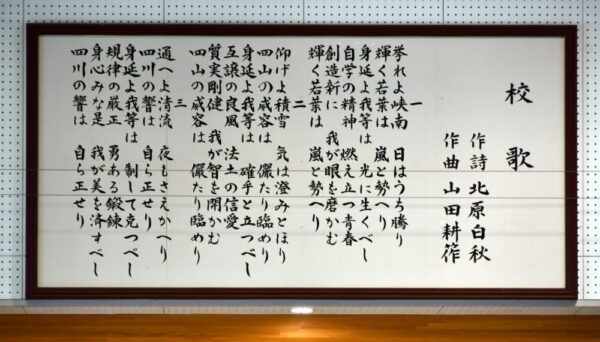 校歌
作詩 北原白秋
作曲 山田耕筰
一
挙れよ峡南 日はうち勝り
輝く若葉は 嵐と勢へり
身延よ我等は 光に生くべし
自学の精神 燃え立つ青春
創造新に 我が眼を磨かむ
輝く若葉は 嵐と勢へり
二
仰げよ積雪 気は澄みとほり
四山の威容は 儼たり臨めり
身延よ我等は 確乎と立つべし
互譲の良風 法土の信愛
質実剛健 我が智を開かむ
四山の威容は 儼たり臨めり
三
通へよ清流 夜もさえかへり
四川の響は 自ら正せり
身延よ我等は 制して克つべし
規律の厳正 勇ある鍛錬
身心みな是 我が美を済すべし
四川の響は 自ら正せり